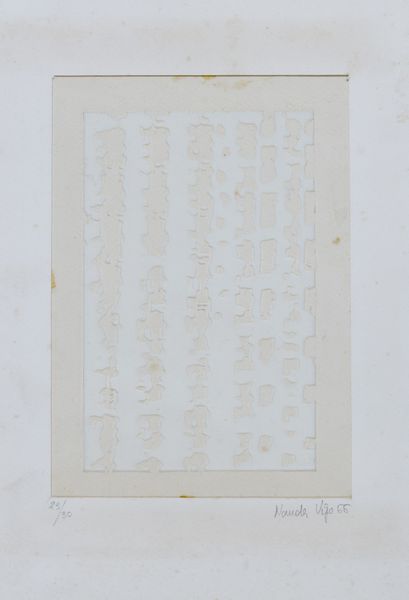 23/
/30
Nanda Vigo 66